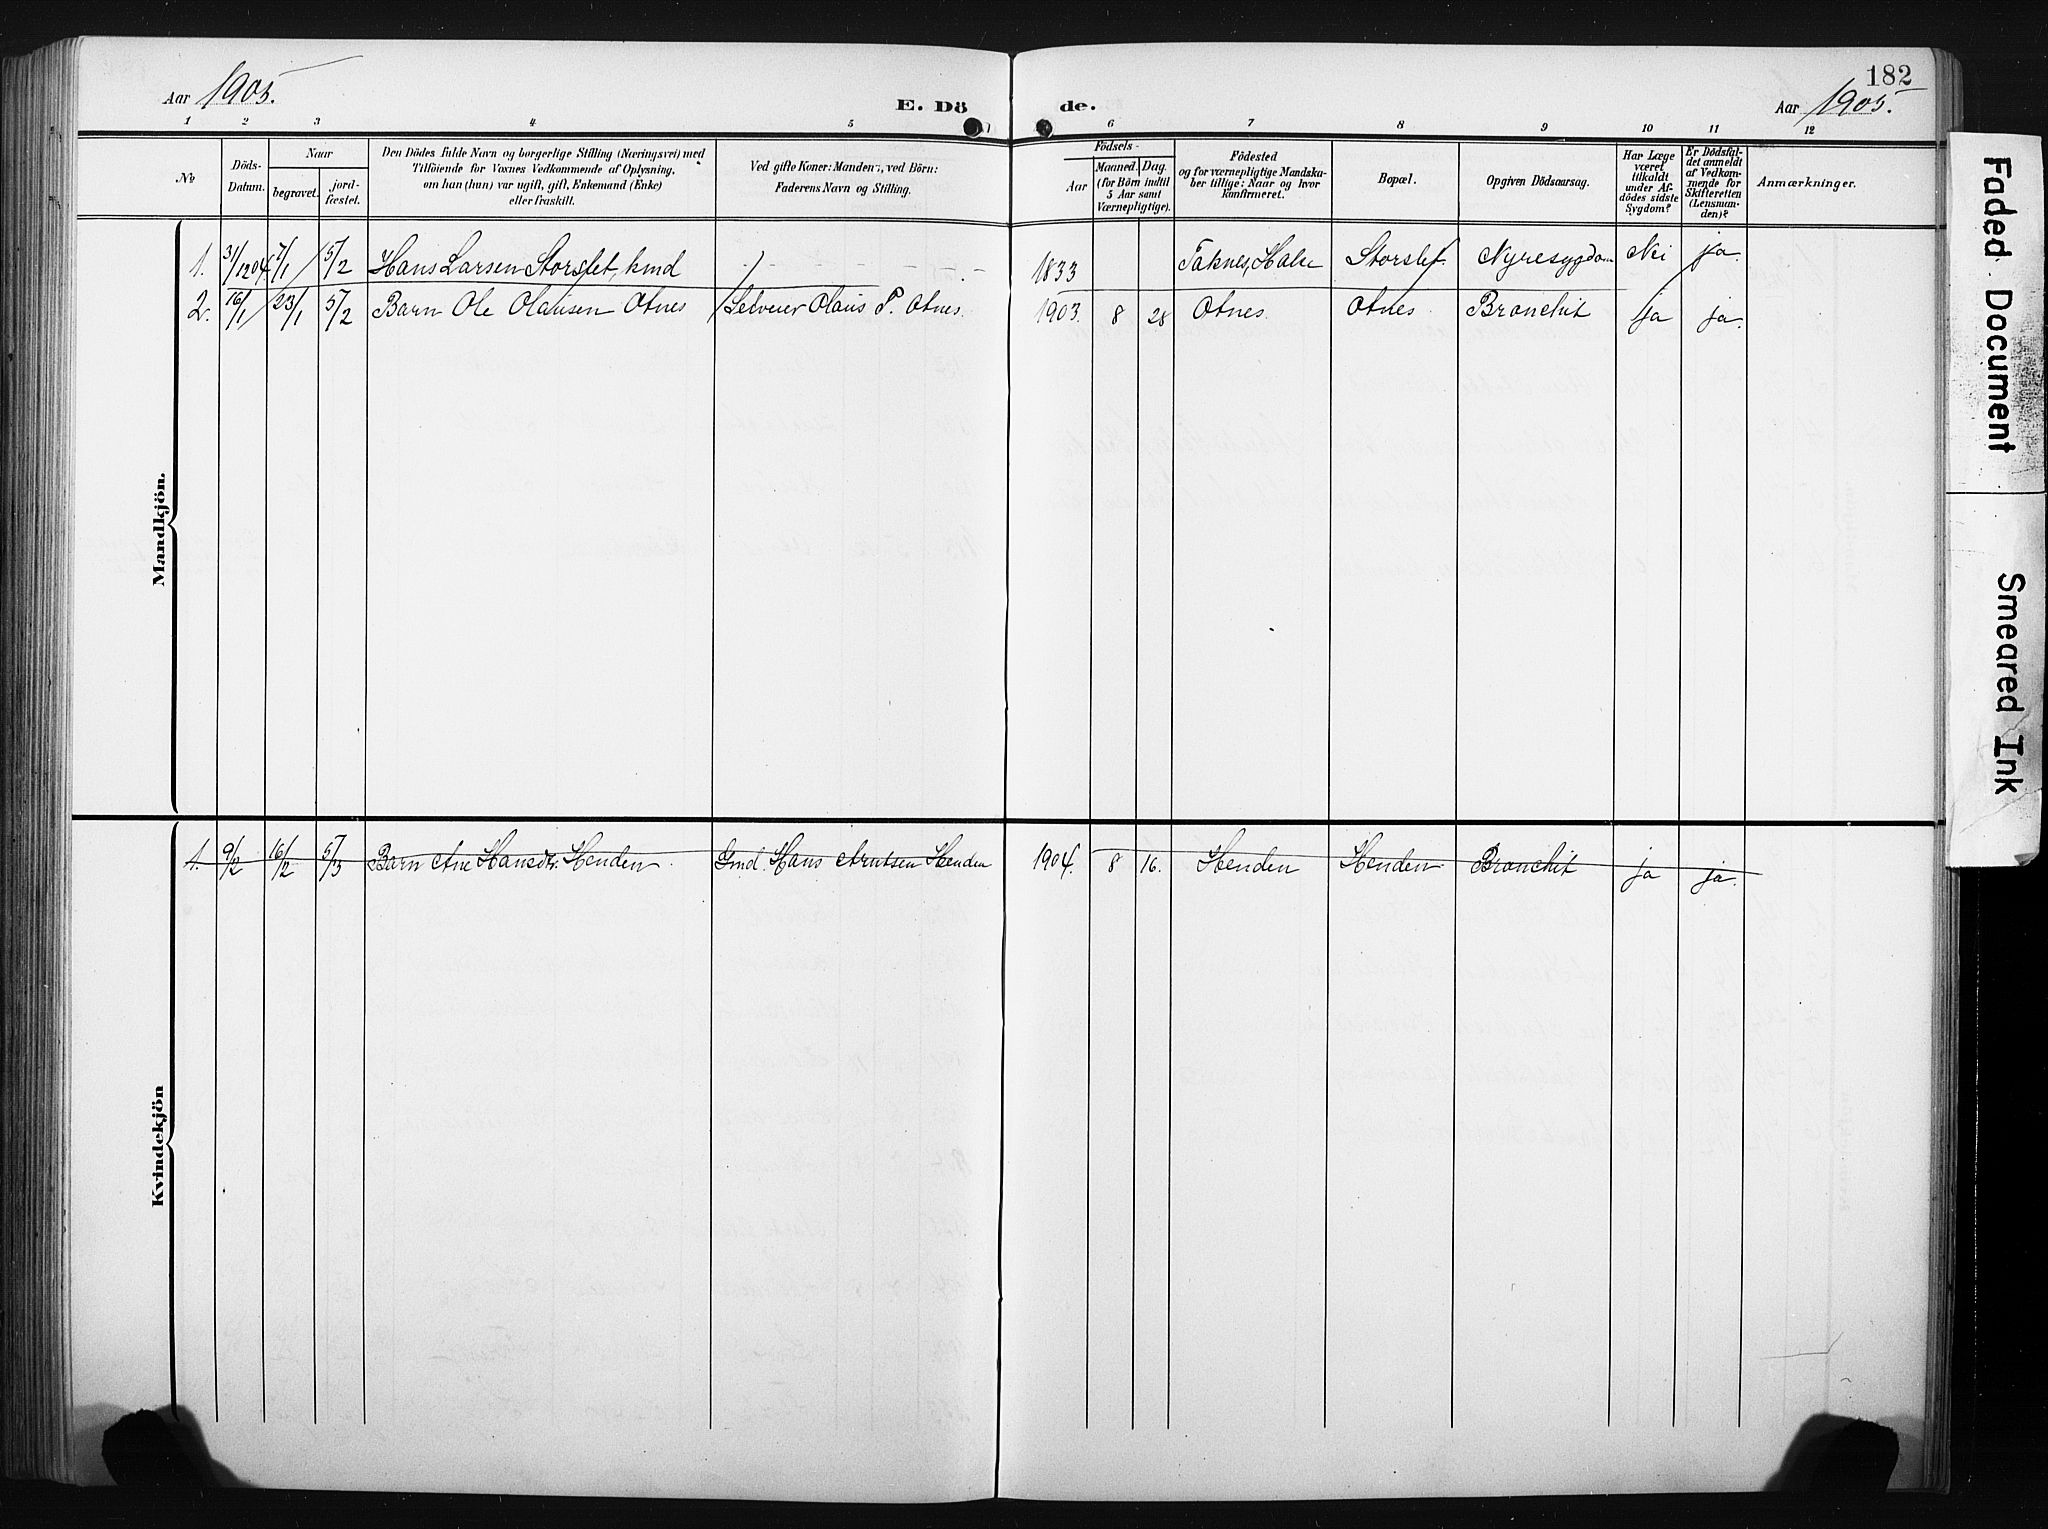 182
Aar 1905. E. Dö de. Aar 1905.
1 2 3 4 5 6 7 8 9 10 11 12
No
Döds-Datum.
Naar
begravet.
jord-fæstet.
Den Dödes fulde Navn og borgerlige Stilling (Næringsvei) med
Tilföiende for Voxnes Vedkommende af Oplysning,
om han (hun) var ugift, gift, Enkemand (Enke)
eller fraskilt.
Ved gifte Koner: Manden-, ved Börn:
Faderens Navn og Stilling.
Födsels-
Aar
Maaned. Dag.
(for Börn indtil
5 Aar samt
Værnepligtige).
Födested
og for værnepligtige Mandska-
ber tillige: Naar og hvor
konfirmeret.
Bopæl.
Opgiven Dödsaarsag.
Har Læge
været
tilkaldt
under Af-
dödes sidste
Sygdom?
Er Dödsfal-
det anmeldt
af Vedkom-
mende for
Skifteretten
(Lensman-
den)?
Anmærkninger.
Mandkjön.
1. 31/12 04 7/1 5/2 Hans Larsen Storslet, kmd 1833 Taknes, Halse Storslet Nyresygdom Nei ja
2. 16/1 23/1 5/2 Barn Ole Olausen Otnes Selveier Olaus P. Otnes. 1903. 8 28 Otnes. Otnes Bronchit ja ja.
Kvindekjön
1. 9/2 16/2 5/3 Barn Ane Hansdtr. Henden Gmd. Hans Arntsen Henden 1904. 8 16. Henden Henden Bronchit ja ja.
Faded Document
Smeared Ink